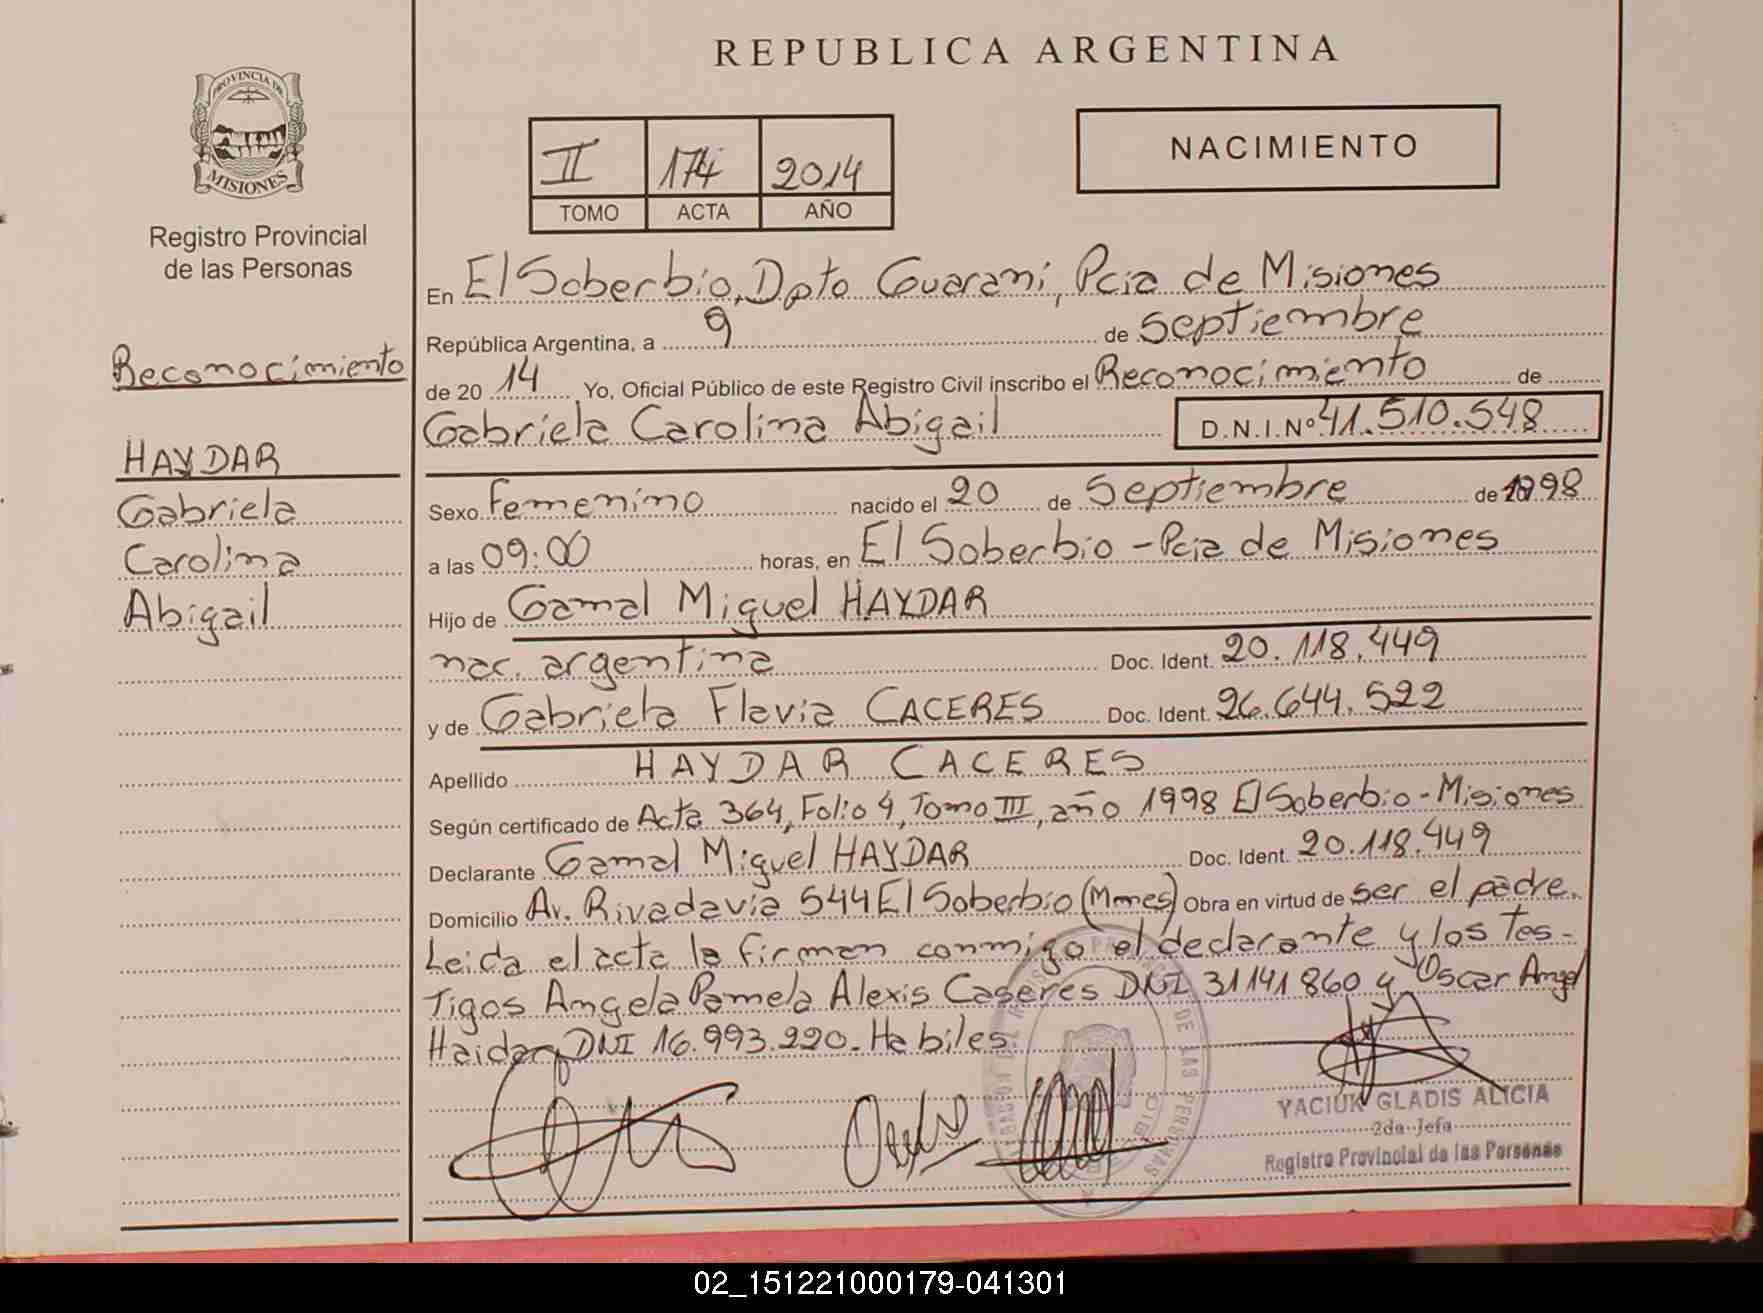 REPUBLICA ARGENTINA
PROVINCIA DE
MISIONES
Registro Provincial
de las Personas
II 174 2014
TOMO ACTA AÑO
NACIMIENTO
Reconocimiento
HAYDAR
Gabriela
Carolina
Abigail
En El Soberbio, Dpto Guarani, Pcia de Misiones
República Argentina, a 9 de Septiembre
de 20 14 Yo, Oficial Público de este Registro Civil inscribo el Reconocimiento de
Gabriela Carolina Abigail D.N.I.Nº 41.510.548
Sexo Femenino nacido el 20 de Septiembre de 1998
a las 09:00 horas, en El Soberbio - Pcia de Misiones
Hijo de Gamal Miguel HAYDAR
nac. argentina Doc. Ident. 20.118.449
y de Gabriela Flavia CACERES Doc. Ident. 26.644.522
Apellido HAYDAR CACERES
Según certificado de Acta 364, Folio 4, Tomo III, año 1998 El Soberbio - Misiones
Declarante Gamal Miguel HAYDAR Doc. Ident. 20.118.449
Domicilio Av. Rivadavia 544 El Soberbio (Mnes) Obra en virtud de ser el padre.
Leida el acta la firman conmigo el declarante y los Tes-
tigos Angela Pamela Alexis Caseres DNI 31141860 y Oscar Angel
Haidar DNI 16.993.220. Habiles
YACIUK GLADIS ALICIA
2da Jefa
Registro Provincial de las Personas
02_151221000179-041301